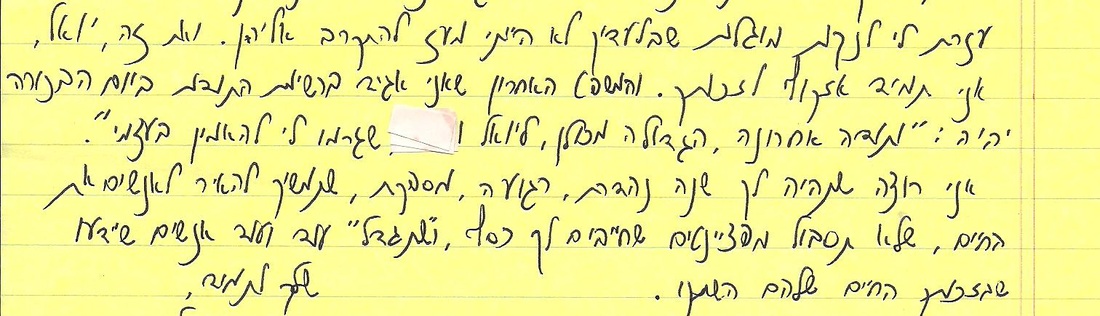 עזרת לי לנקות מוגלות שבלעדיך לא הייתי מעז להתקרב אליהן. ואת זה, יואל,
אני תמיד אזקוף לזכותך. והמשפט האחרון שאני אגיד ברשימת התודות ביום הבכורה
יהיה: "ותודה אחרונה, הגדולה מכולן, ליואל ו שגרמו לי להאמין בעצמי".
אני רוצה שתהיה לך שנה נהדרת, רגועה, מספקת, שתמשיך להאיר לאנשים את
החיים, שלא תסבול מפציינטים שחייבים לך כסף, ו"שתגדל" עוד ועוד אנשים שיידעו
שבזכותך החיים שלהם השתנו.
שלך לתמיד,